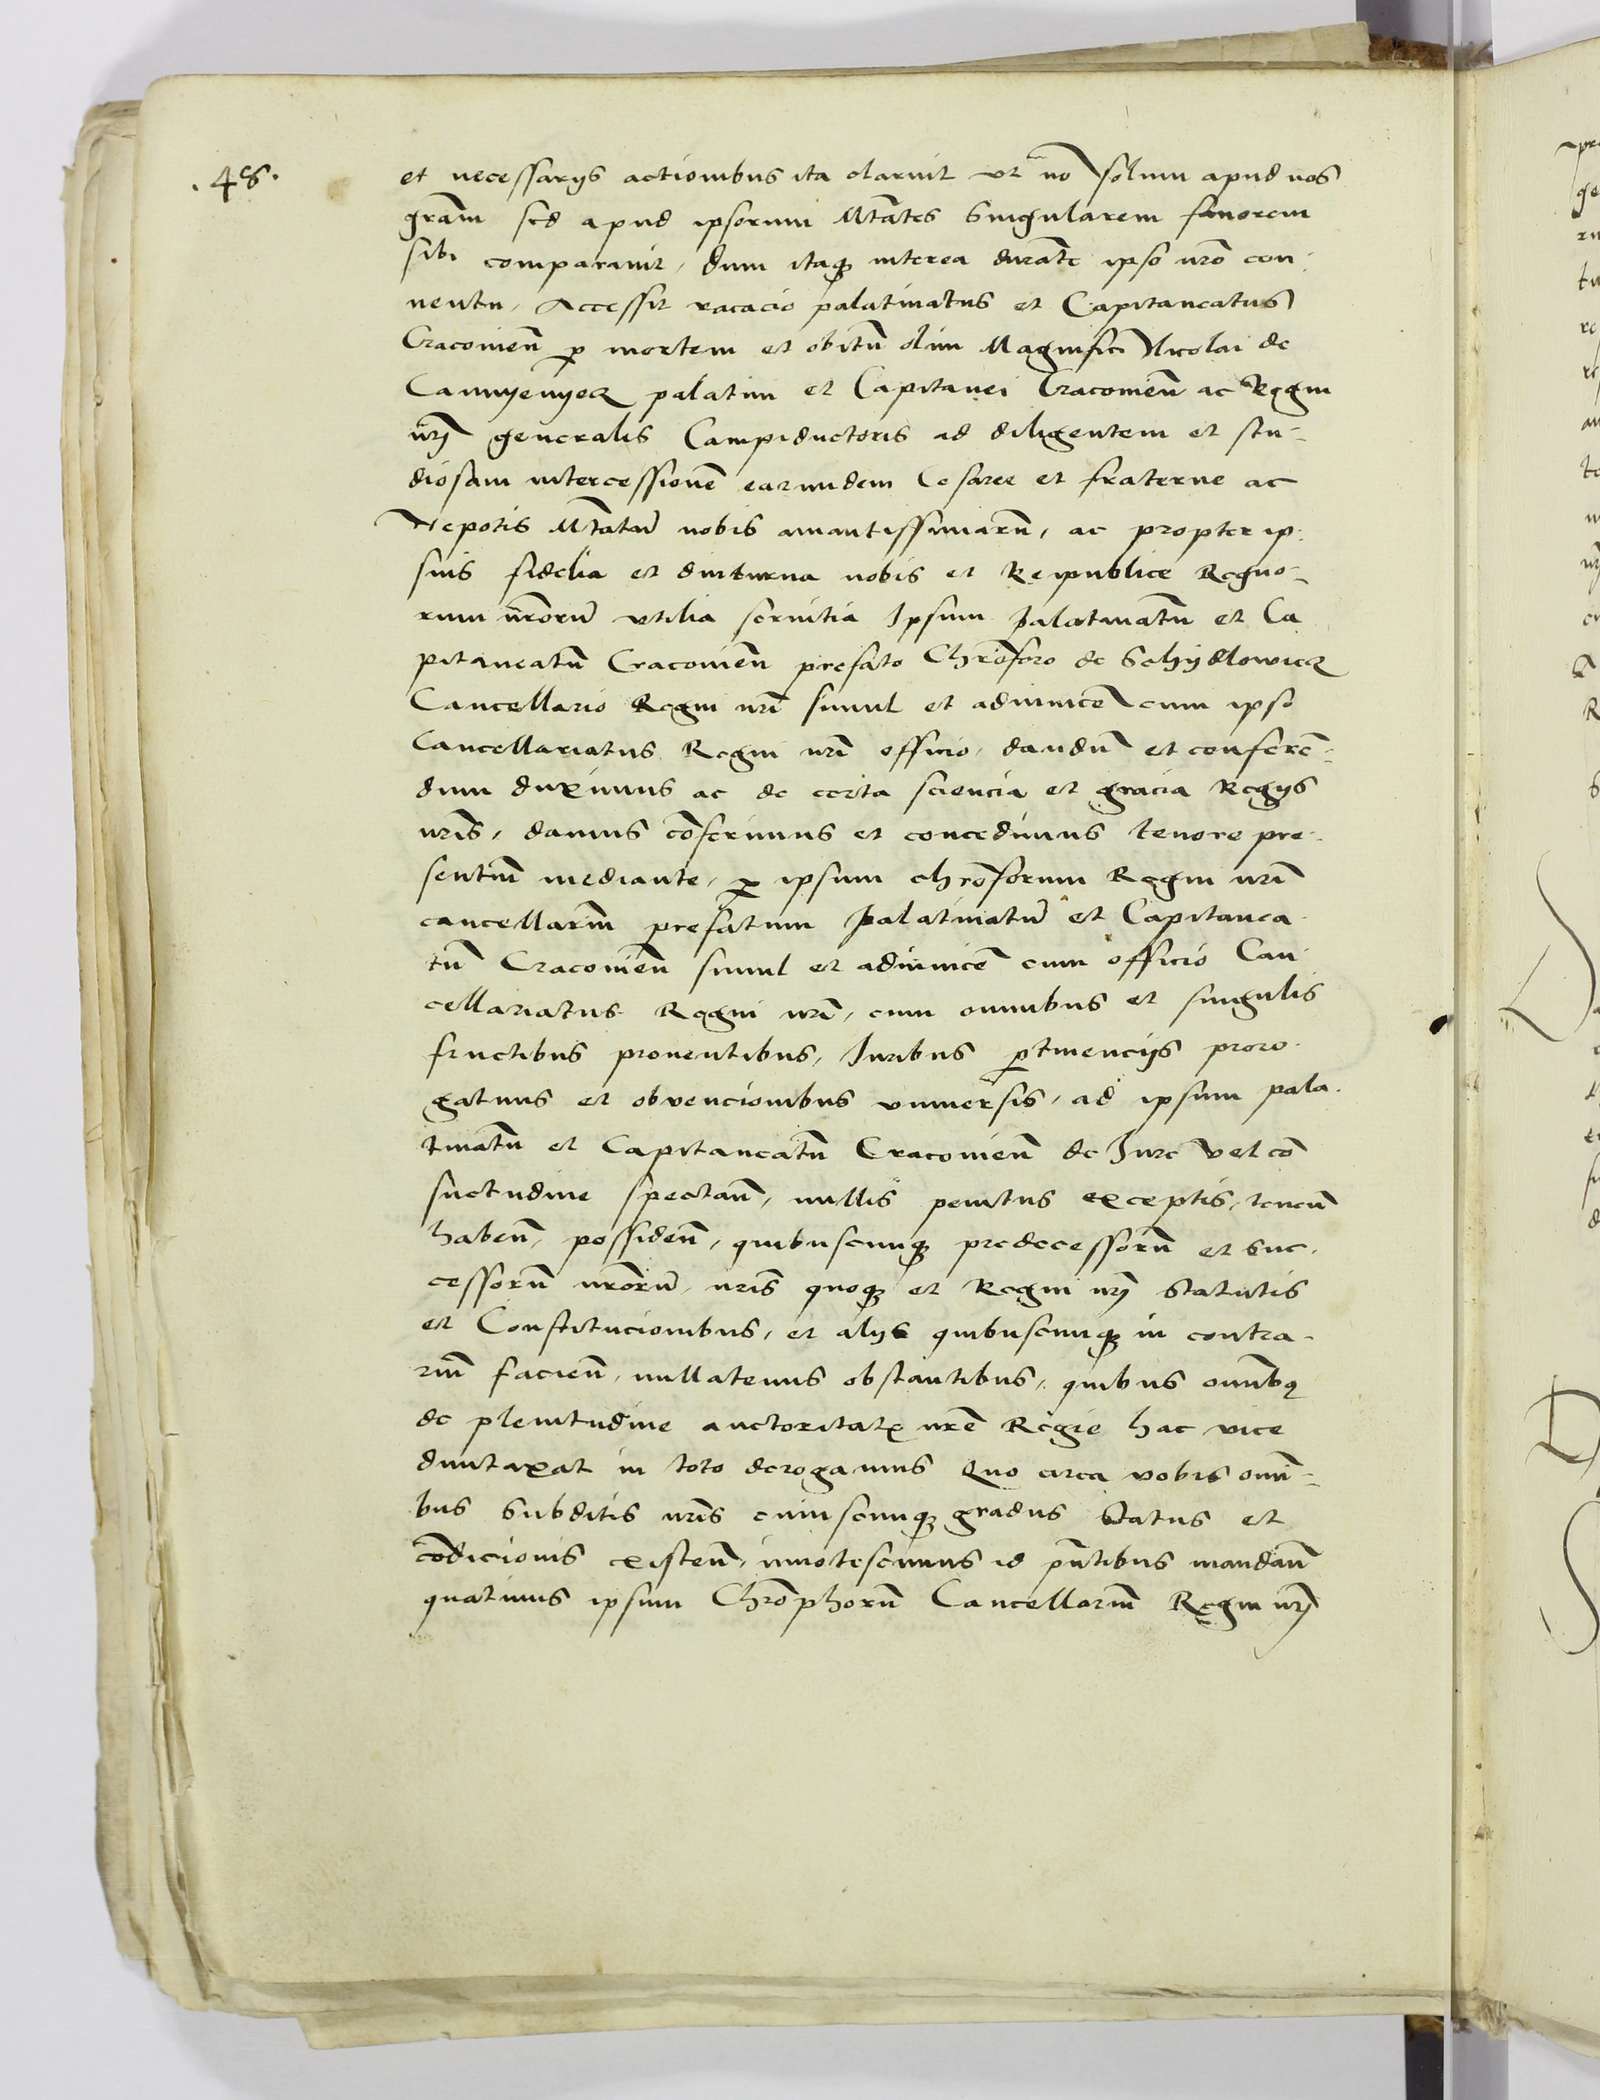 .48.
et necessarijs actionibus ita claruit ut nō solum apud nos
grām sed apud ipsorum Mtātes Singularem fauorem
sibi comparauit, dum itaq interea durāte ipso nrō con
uentu, Accessit vacacio palatinatus et Capitaneatus
Cracovien̄ p mortem et obitū olim Magnifici Nicolai de
Camyenyecz palatini et Capitanei Cracovien̄ ac Regni
nrj̄ generalis Campiductoris ad diligentem et stu-
diosam intercessionē earundem Cesaree et fraterne ac
Nepotis Mtātum̄ nobis amantissimarū, ac propter ip-
sius fidelia et diuturna nobis et Reipublice Regno-
rum nrōrum̄ utilia seruitia Ipsum palatinatū et Ca
pitaneatū Cracovien̄ prefato Chrōforo de Schijdlowicz
Cancellario Regni nrī simul et adinuicē cum ipso
Cancellariatus Regni nrī officio, dandū et conferē-
dum duximus ac de certa sciencia et gracia Regijs
nrīs, damus cōferimus et concedimus tenore pre-
sentium̄ mediante, p ipsum chrōforum Regni nrī
cancellariū prefatum palatinatum̄ et Capitanea
tū Cracovien̄ simul et adinuicē cum officio Can
cellariatus Regni nrī, cum omnibus et singulis
fructibus prouentibus, Iuribus ptinencijs proro-
gatiuis et obvencionibus vniuersis, ad ipsum pala-
tinatū et Capitaneatū Cracovien̄ de Iure vel cō
suetudine spectan̄, nullis penitus exceptis, tenen̄
haben̄, possiden̄, quibuscunq predecessorū et suc-
cessorū nrōrum̄, nrīs quoq et Regni nrj̄ statutis
et Constitucionibus, et alijs quibuscunq in contra-
riū facien̄, nullatenus obstantibus, quibus omnibq
de plenitudine auctoritatẹ nrē Regie hac vice
duntaxat in toto derogamus Quo circa vobis omni-
bus Subditis nrīs cuiuscunq gradus status et
cōdicionis existen̄, innotescimus id pn̄tibus mandan̄
quatinus ipsum Chrōphorū Cancellariū Regni nrj̄